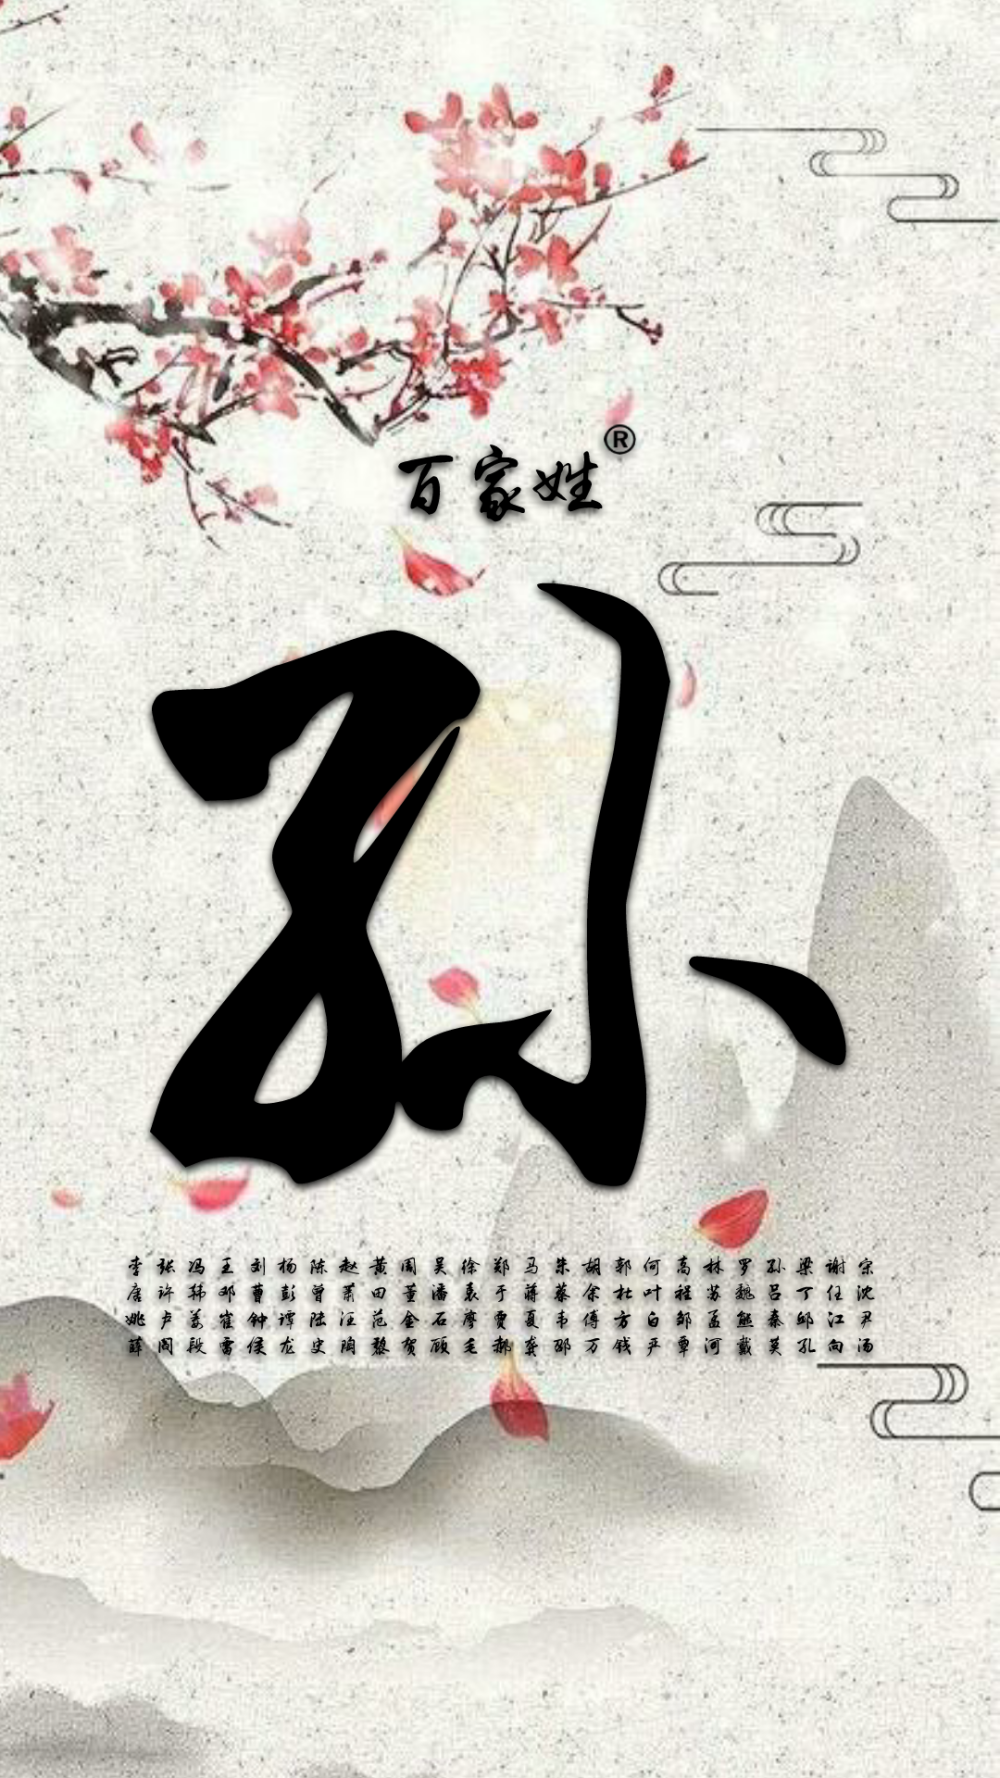 百家姓®
孙
李张冯王刘杨陈赵黄周吴徐郑马朱胡郭何高林罗孙梁谢宗
唐许韩邓曹彭曾萧田董潘袁于蒋蔡余杜叶程苏魏吕丁任沈
姚卢姜崔钟谭陆汪范金石廖贾夏韦傅方白邹孟熊秦邱江尹
薛阎段雷侯龙史陶黎贺顾毛郝龚邵万钱严覃河戴莫孔向汤